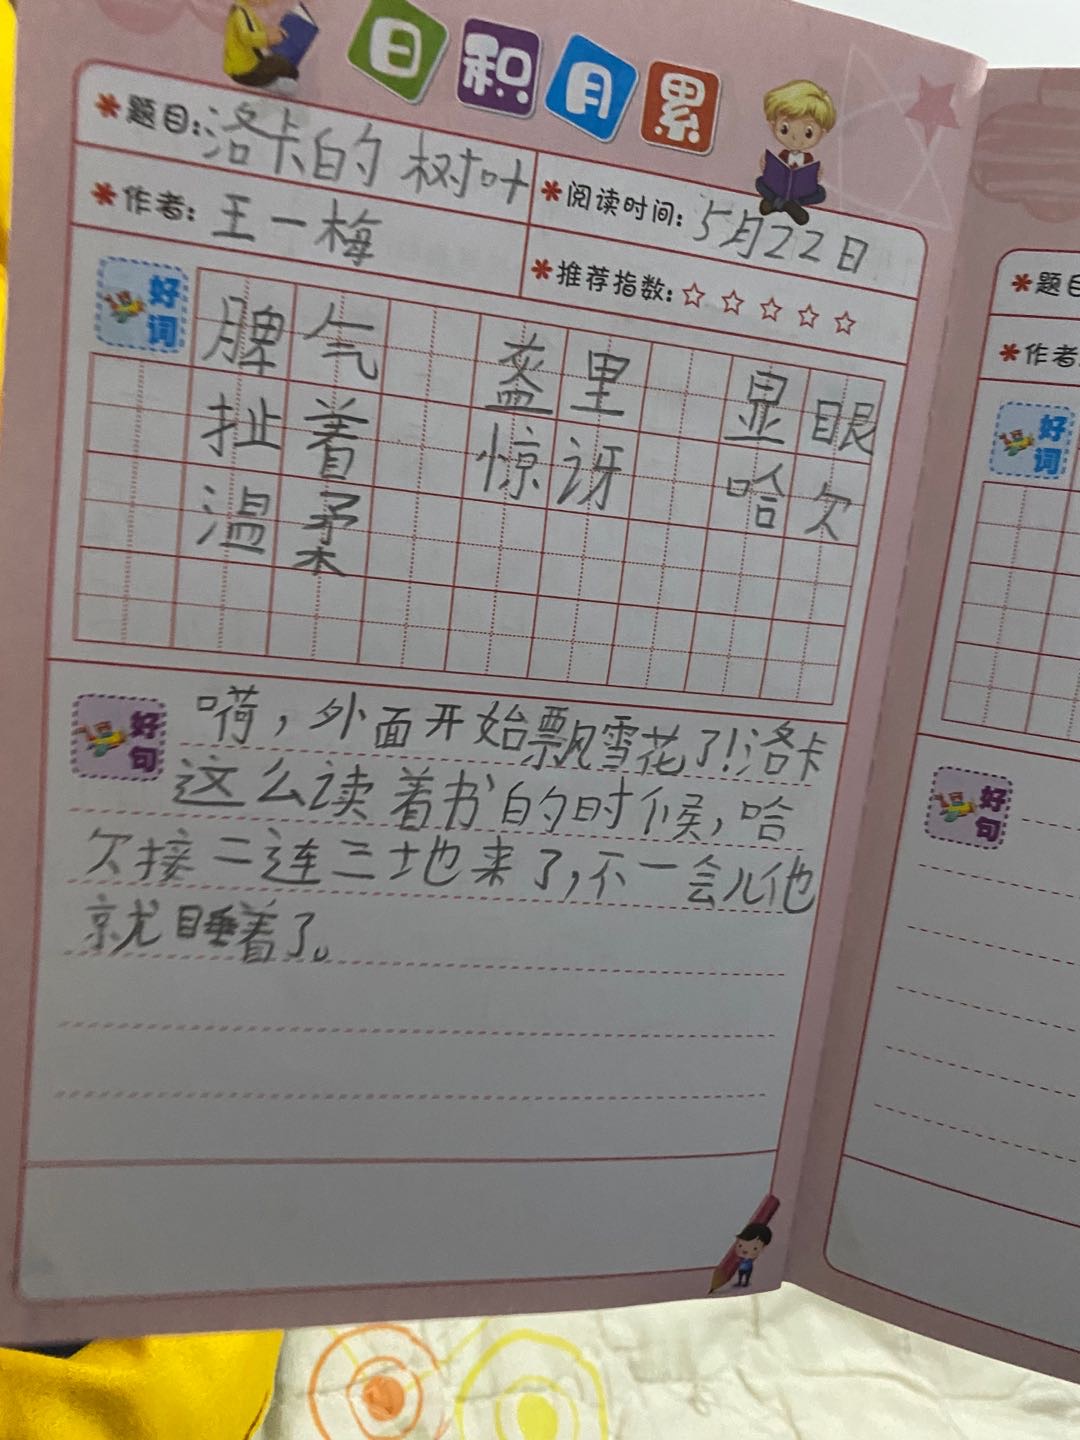 日积月累
题目：洛卡的树叶
阅读时间：5月22日
作者：王一梅
推荐指数：☆☆☆☆☆
好词
脾气 盔里 显眼
扯着 惊讶 哈欠
温柔
好句
嗬，外面开始飘雪花了！洛卡
这么读着书的时候，哈
欠接二连三地来了，不一会儿他
就睡着了。
题目
作者
好词
好句